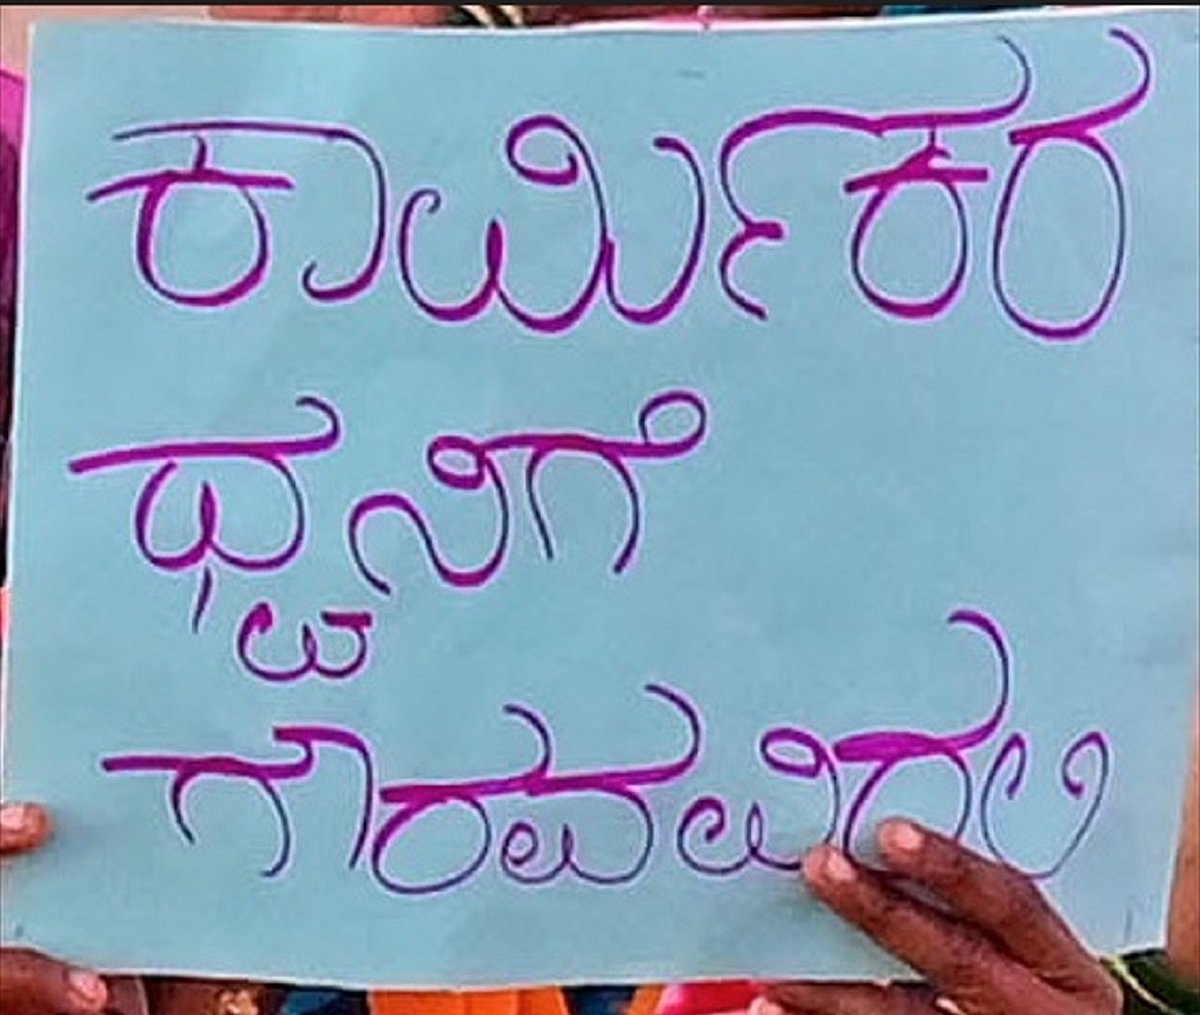 ಕಾರ್ಮಿಕರ
ಧ್ವನಿಗೆ
ಗೌರವವಿರಲಿ